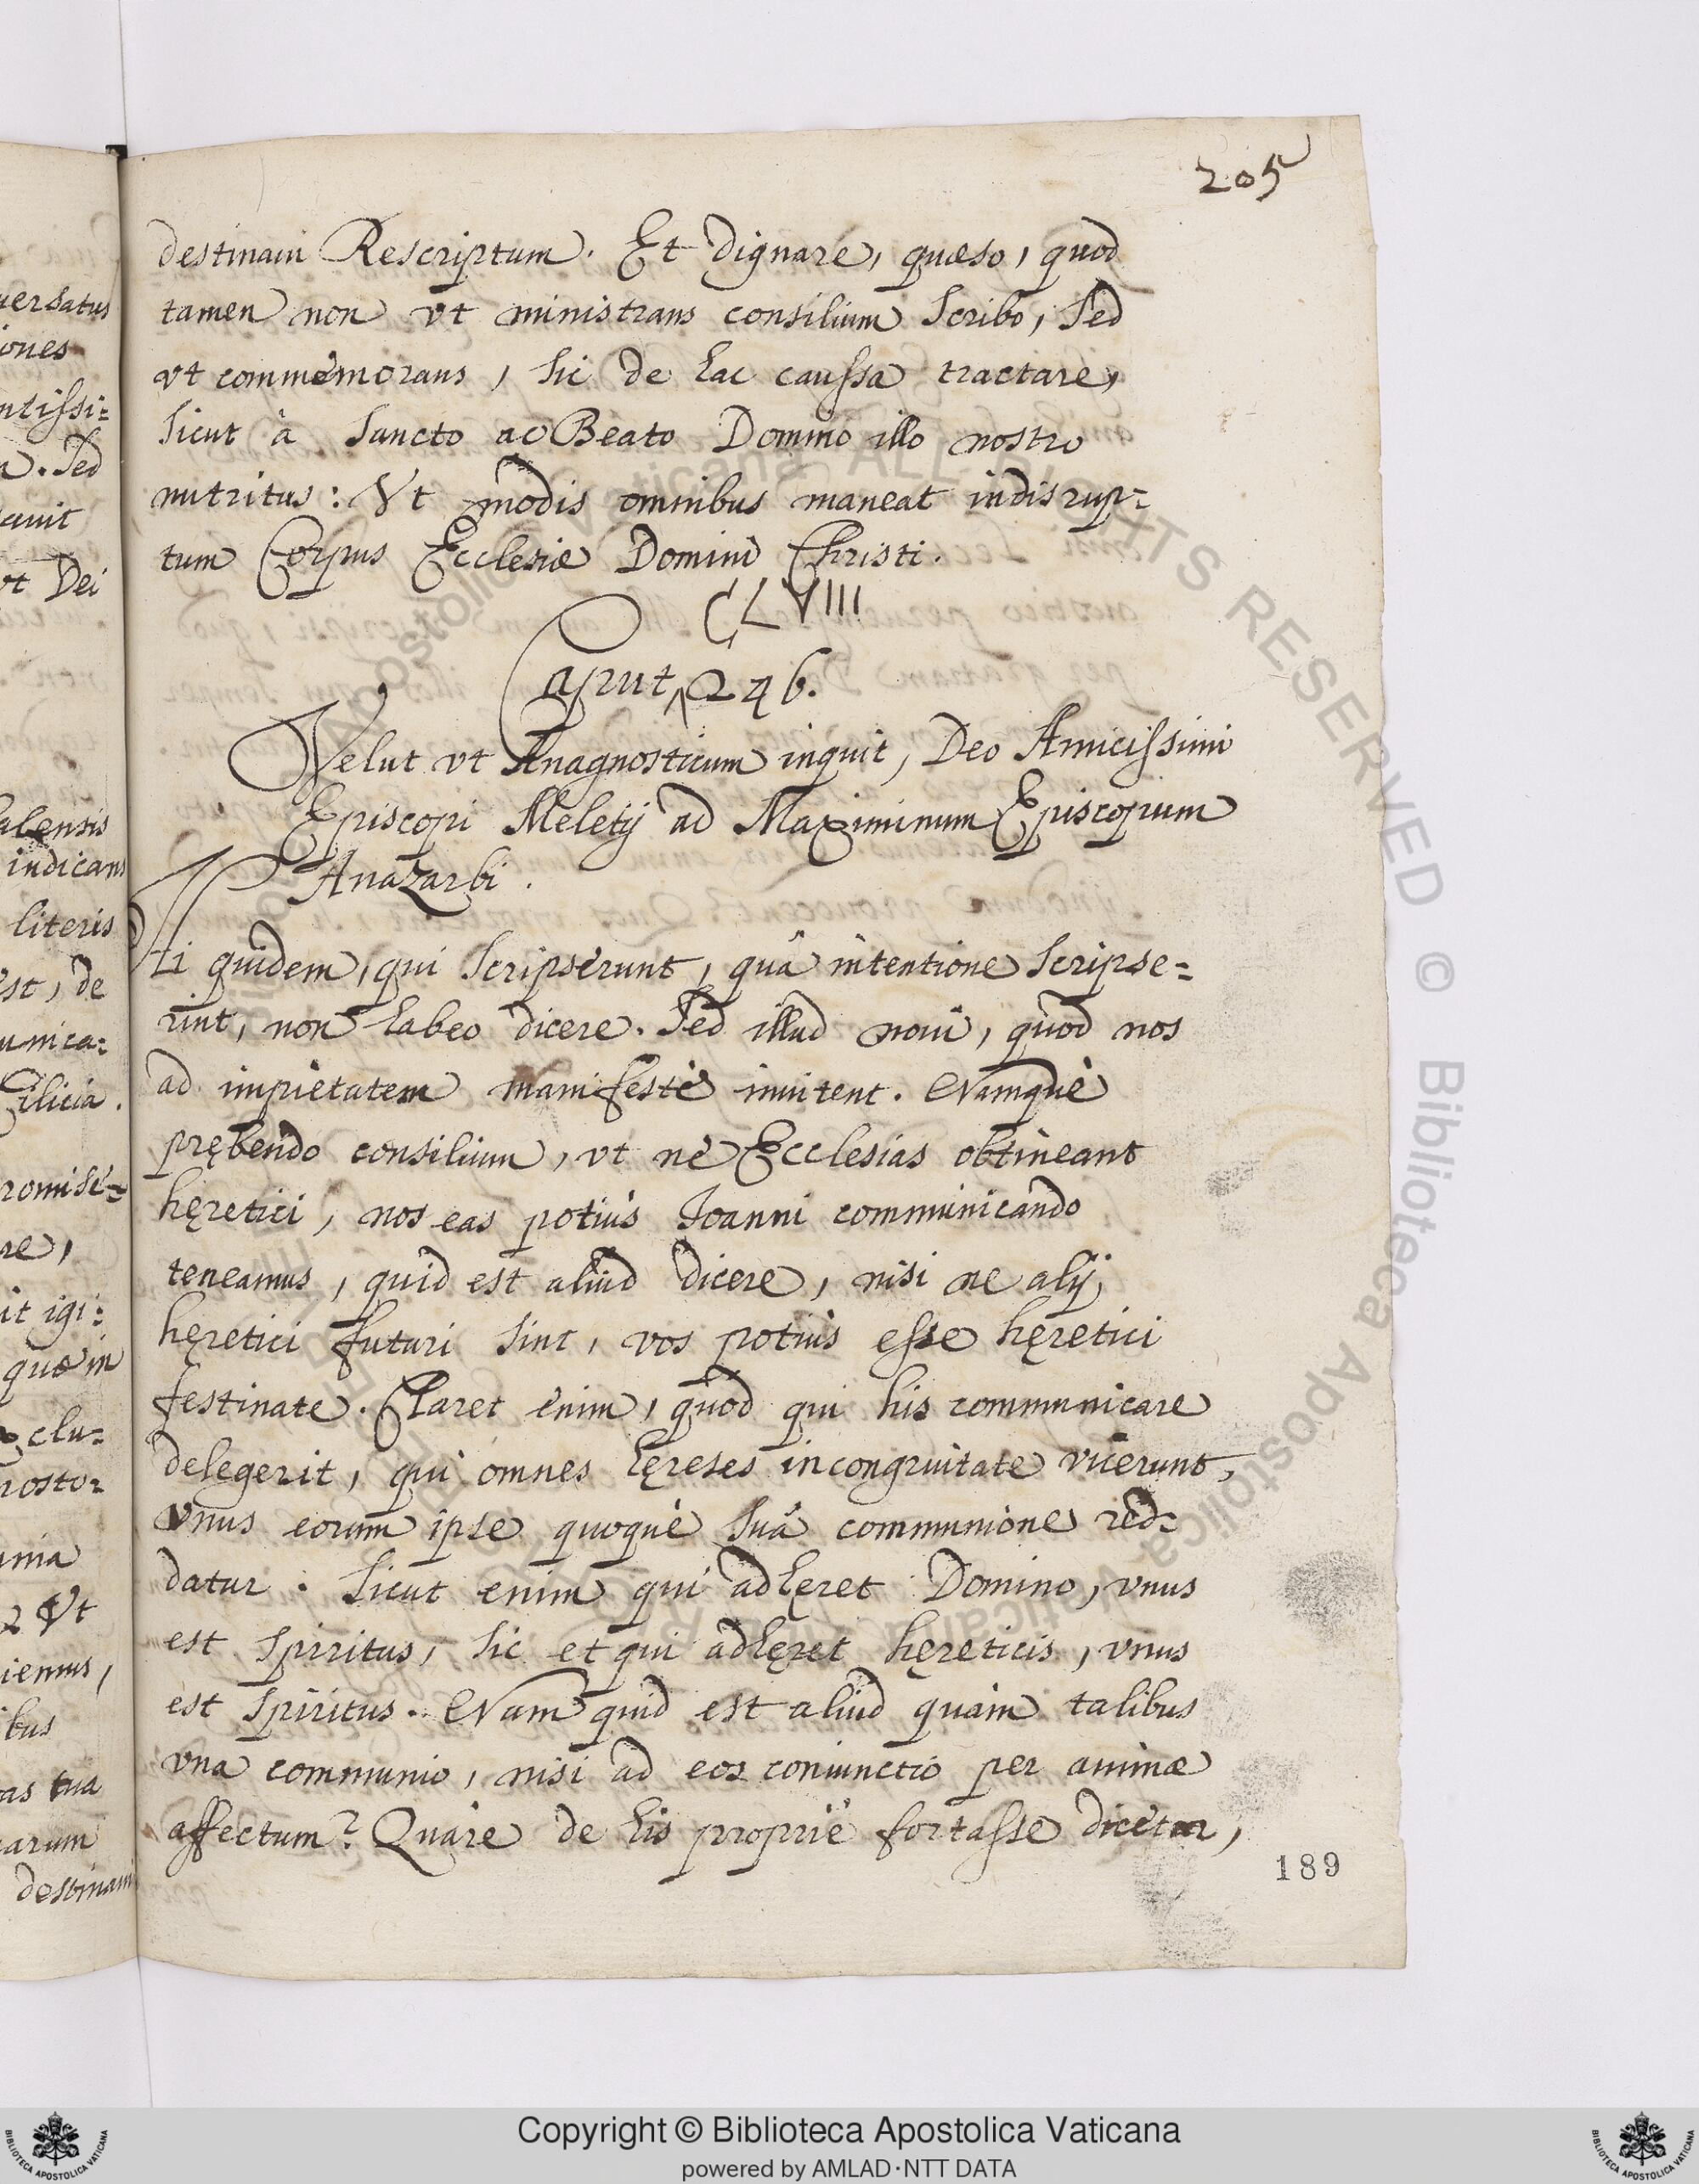 205
destinaui Rescriptum. Et dignare, quæso, quod
tamen non vt ministrans consilium scribo, sed
vt commemorans, sic de hac caussa tractare,
sicut à Sancto ac Beato Domino illo nostro
nutritus: Vt modis omnibus maneat indisrup=
tum Corpus Ecclesiæ Domini Christi.
CLVIII
Caput 246.
Velut vt Anagnosticum inquit, Deo Amicissimi
Episcopi Meletij ad Maximinum Episcopum
Anazarbi.
Ii quidem, qui scripserunt, quâ intentione scripse=
rint, non habeo dicere. Sed illud noui, quod nos
ad impietatem manifestè inuitent. Namque
prębendo consilium, vt ne Ecclesias obtineant
hęretici, nos eas potius Joanni communicando
teneamus, quid est aliud dicere, nisi ne alij
hęretici futuri sint, vos potius esse hęretici
festinate. Claret enim, quod qui his communicare
delegerit, qui omnes hęreses incongruitate vicerunt,
vnus eorum ipse quoque suâ communione red=
datur. Sicut enim qui adhęret Domino, vnus
est Spiritus, sic et qui adhęret hęreticis, vnus
est Spiritus. Nam quid est aliud quàm talibus
vna communio, nisi ad eos coniunctio per animæ
affectum? Quare de his propriè fortasse dicetur,
189
uersatus
iones
ntissi=
. Sed
auit
vt Dei
alensis
indicans
literis
est, de
unica=
Cilicia.
romise=
re,
it igi=
quæ in
clu=
nosto=
Vt
iemus,
ibus
as tua
arum
destinaui
Copyright © Biblioteca Apostolica Vaticana
powered by AMLAD·NTT DATA